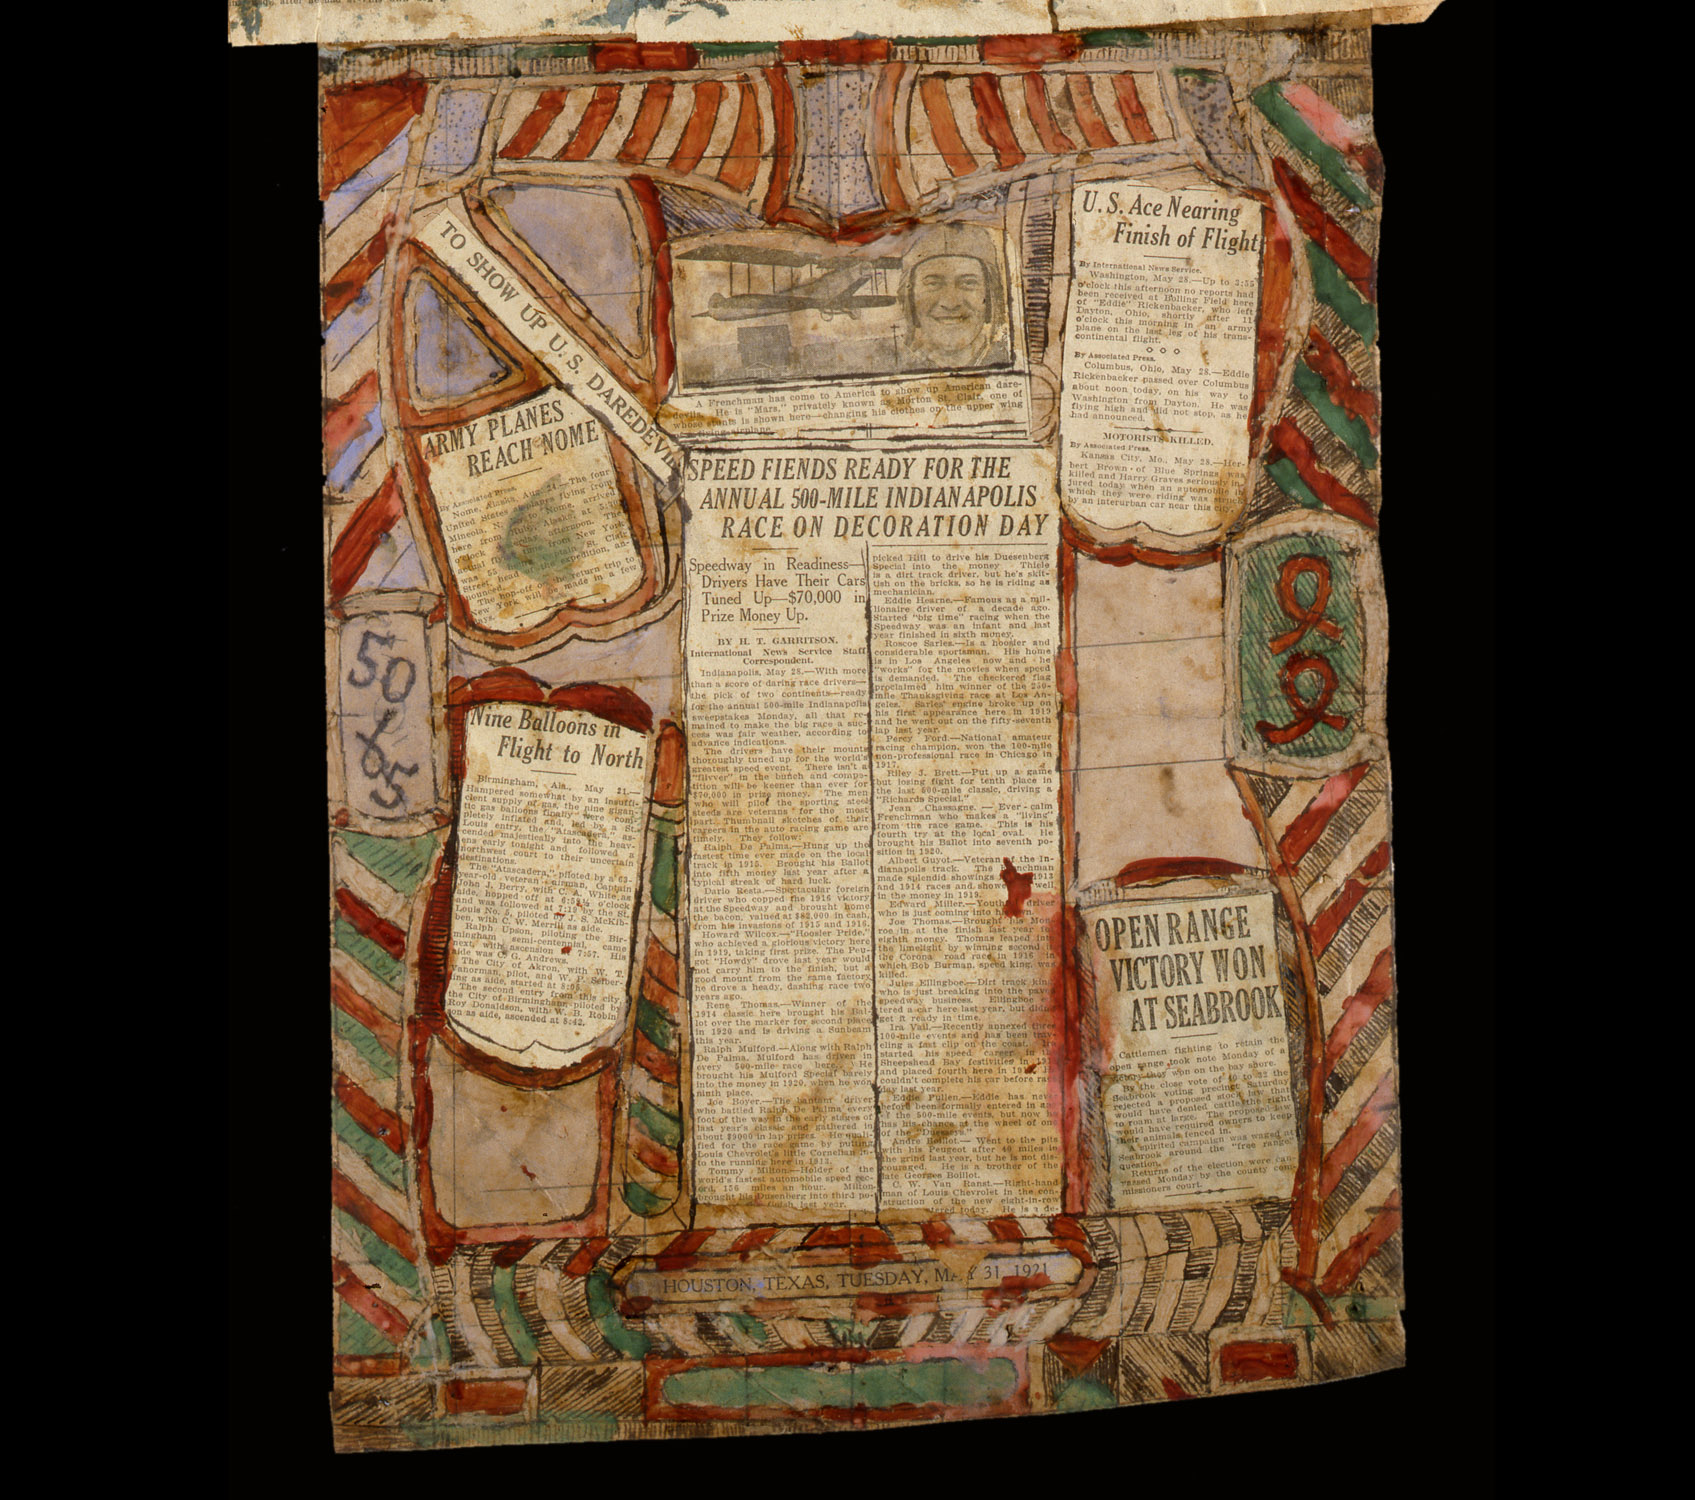 TO SHOW UP U.S. DAREDEVIL
A Frenchman has come to America to show up American dare-
devils. He is "Mars," privately known as Morton St. Clair, one of
whose stunts is shown here—changing his clothes on the upper wing
U. S. Ace Nearing
Finish of Flight
By International News Service.
Washington, May 28.—Up to 3:55
o'clock this afternoon no reports had
been received at Bolling Field here
of "Eddie" Rickenbacker, who left
Dayton, Ohio, shortly after 11
o'clock this morning in an army
plane on the last leg of his trans-
continental flight.
By Associated Press.
Columbus, Ohio, May 28.—Eddie
Rickenbacker passed over Columbus
about noon today, on his way to
Washington from Dayton. He was
flying high and did not stop, as he
had announced.
MOTORISTS KILLED.
By Associated Press.
Kansas City, Mo., May 28.—Her-
bert Brown of Blue Springs was
killed and Harry Graves serious in-
jured today when an automobile in
which they were riding was struck
by an interurban car near this city.
ARMY PLANES
REACH NOME
By Associated Press.
Nome, Alaska, Aug. 24.—The four
United States airplanes flying from
Mineola, N. Y., to Nome, arrived
SPEED FIENDS READY FOR THE
ANNUAL 500-MILE INDIANAPOLIS
RACE ON DECORATION DAY
Speedway in Readiness—
Drivers Have Their Cars
Tuned Up—$70,000 in
Prize Money Up.
BY H. T. GARRITSON.
International News Service Staff
Correspondent.
Indianapolis, May 28.—With more
than a score of daring race drivers—
the pick of two continents—ready
for the annual 500-mile Indianapolis
sweepstakes Monday, all that re-
mained to make the big race a suc-
cess was fair weather, according to
advance indications.
The drivers have their mounts
thoroughly tuned up for the world's
greatest speed event. There isn't a
"flivver" in the bunch and compe-
tition will be keener than ever for
$70,000 in prize money. The men
who will pilot the sporting steel
steeds are veterans for the most
part. Thumbnail sketches of their
careers in the auto racing game are
timely. They follow:
Ralph De Palma.—Hung up the
fastest time ever made on the local
track in 1915. Brought his Ballot
into fifth money last year after a
typical streak of hard luck.
Dario Resta.—Spectacular foreign
driver who copped the 1916 victory
at the Speedway and brought home
the bacon, valued at $82,000 in cash,
from his invasions of 1915 and 1916.
Howard Wilcox.—"Hoosier Pride,"
who achieved a glorious victory here
in 1919, taking first prize. The Peu-
got "Howdy" drove last year would
not carry him to the finish, but a
good mount from the same factory
he drove a heady, dashing race two
years ago.
Rene Thomas.—Winner of the
1914 classic here brought his Bal-
lot over the marker for second place
in 1920 and is driving a Sunbeam
this year.
Ralph Mulford.—Along with Ralph
De Palma, Mulford has driven in
every 500-mile race here. He
brought his Mulford Special barely
into the money in 1920, when he won
ninth place.
Joe Boyer.—The bantam driver
who battled Ralph De Palma every
foot of the way in the early stages of
last year's classic and gathered in
about $9000 in lap prizes. He quali-
fied for the race game by putting
Louis Chevrolet's little Cornelian in-
to the running here in 1913.
Tommy Milton.—Holder of the
world's fastest automobile speed rec-
ord, 156 miles an hour. Milton
brought his Dusenberg into third po-
finish last year.
picked Hill to drive his Duesenberg
Special into the money. Thiele
is a dirt track driver, but he's skit-
tish on the bricks, so he is riding as
mechanician.
Eddie Hearne.—Famous as a mil-
lionaire driver of a decade ago.
Started "big time" racing when the
Speedway was an infant and last
year finished in sixth money.
Roscoe Sarles.—Is a hoosier and
considerable sportsman. His home
is in Los Angeles now and he
"works" for the movies when speed
is demanded. The checkered flag
proclaimed him winner of the 250-
mile Thanksgiving race at Los An-
geles. Sarles' engine broke up on
his first appearance here in 1919
and he went out on the fifty-seventh
lap last year.
Percy Ford.—National amateur
racing champion, won the 100-mile
non-professional race in Chicago in
1917.
Riley J. Brett.—Put up a game
but losing fight for tenth place in
the last 500-mile classic, driving a
"Richards Special."
Jean Chassagne. — Ever-calm
Frenchman who makes a "living"
from the race game. This is his
fourth try at the local oval. He
brought his Ballot into seventh po-
sition in 1920.
Albert Guyot.—Veteran of the In-
dianapolis track. The
made splendid showings 1913
and 1914 races and showed well,
in the money in 1919.
Edward Miller.—Youthful driver
who is just coming into his own.
Joe Thomas.—Brought his Mon-
roe in at the finish last year to
eighth money. Thomas leaped into
the limelight by winning second in
the Corona road race in 1916 in
which Bob Burman, speed king, was
killed.
Jules Ellingboe.—Dirt track king
who is just breaking into the paved
speedway business. Ellingboe en-
tered a car here last year, but didn't
get it ready in time.
Ira Vail.—Recently annexed three
100-mile events and has been trav-
eling a fast clip on the coast.
started his speed career in the
Sheepshead Bay festivities in
and placed fourth here in
couldn't complete his car before race
day last year.
Eddie Pullen.—Eddie has never
before been formally entered in any
of the 500-mile events, but now he
has his chance at the wheel of one
of the
Andre Boillot.— Went to the pits
with his Peugeot after 40 miles in
the grind last year, but he is not dis-
couraged. He is a brother of the
late Georges Boillot.
C. W. Van Ranst.—Right-hand
man of Louis Chevrolet in the con-
struction of the new eight-in-row
entered today. He is a de-
50
85
Nine Balloons in
Flight to North
Birmingham, Ala., May 21.—
Hampered somewhat by an insuffi-
cient supply of gas, the nine gigan-
tic gas balloons finally were com-
pletely inflated and, led by a St.
Louis entry, the "Atascadera," as-
cended majestically into the heav-
ens early tonight and followed a
northwest court to their uncertain
destinations.
The "Atascadera," piloted by a 63-
year-old veteran airman, Captain
John J. Berry, with C. A. White as
aide, hopped off at 6:52½ o'clock
and was followed at 7:19 by the St.
Louis No. 5, piloted by J. S. McKib-
ben, with C. W. Merrill as aide.
Ralph Upson, piloting the Bir-
mingham semi-centennial, came
next, with ascension at 7:57. His
aide was C. G. Andrews.
The City of Akron, with W. T.
Vanorman, pilot, and W. P. Seiber-
ling as aide, started at
The second entry from this city,
the City of Birmingham, piloted by
Roy Donaldson, with W. B. Robin-
son as aide, ascended at 8:42.
OPEN RANGE
VICTORY WON
AT SEABROOK
Cattlemen fighting to retain the
open range took note Monday of a
victory they won on the bay shore.
By the close vote of 40 to 32 the
Seabrook voting precinct Saturday
rejected a proposed stock law that
would have denied cattle the right
to roam at large. The proposed law
would have required owners to keep
their animals fenced in.
A spirited campaign was waged at
Seabrook around the "free range"
question.
Returns of the election were can-
vassed Monday by the county com-
missioners court.
HOUSTON, TEXAS, TUESDAY, MAY 31, 1921